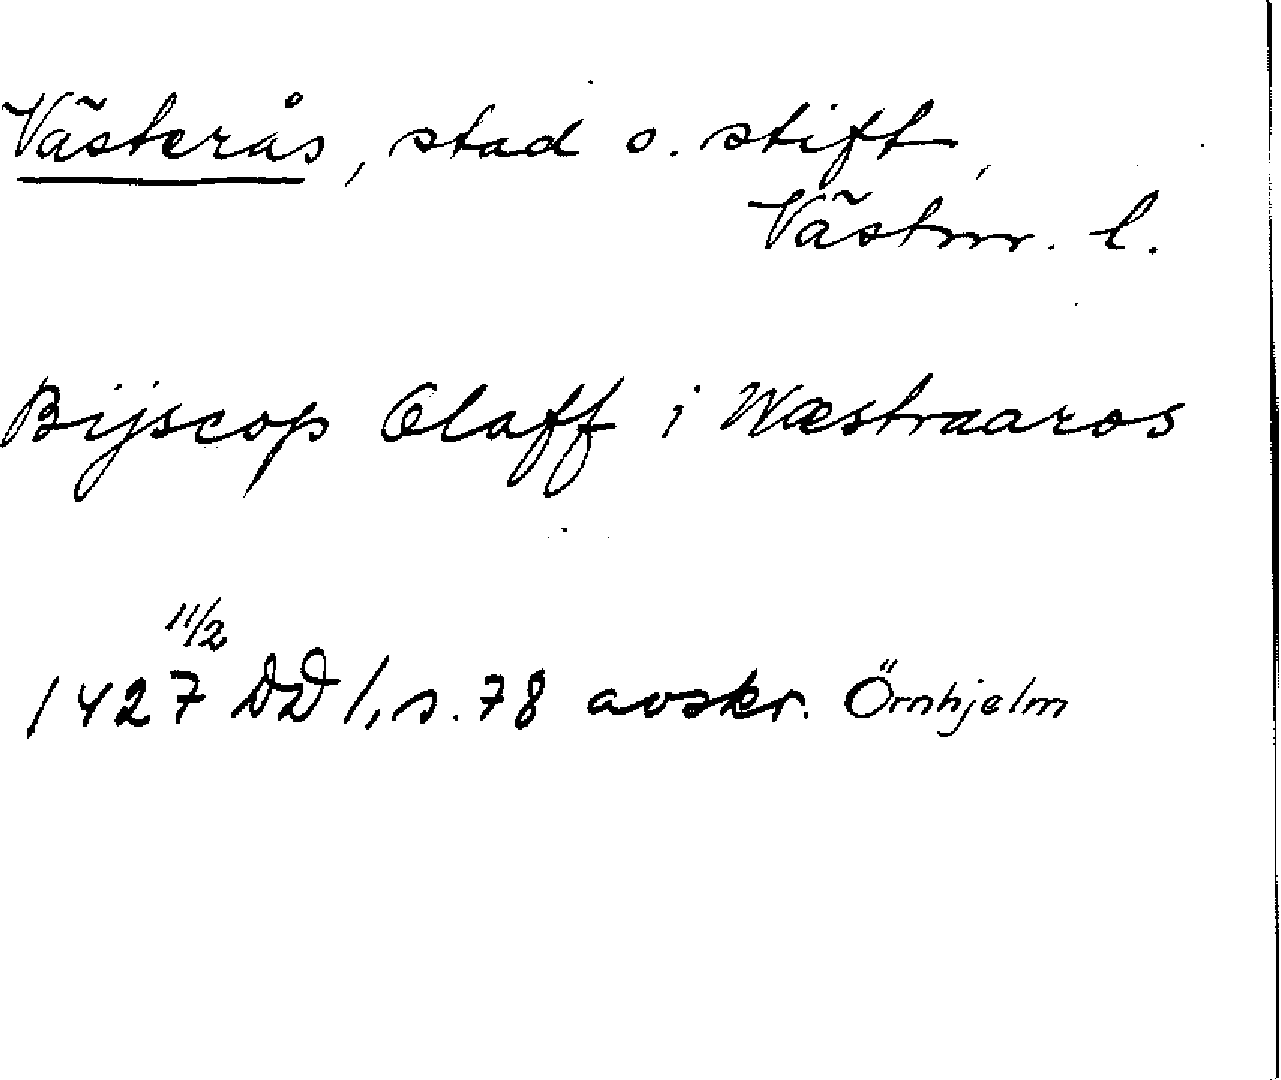 Västerås, stad o. stift,
Västm. l.
Bijscop Olaff i Wæstraaros
11/2
1427 DD 1, s. 78 avskr. Örnhjelm